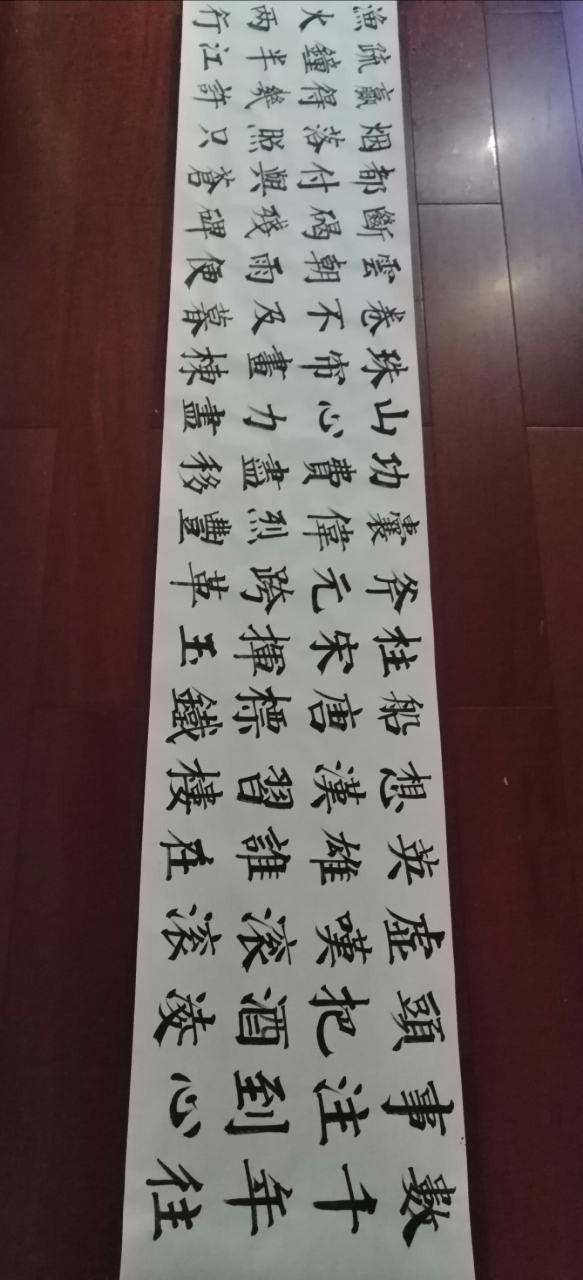 數千年往
事注到心
頭把酒凌
虛嘆滾滾
英雄誰在
想漢習樓
船唐標鐵
柱宋揮玉
斧元跨革
囊偉烈豐
功費盡移
山心力盡
珠帘畫棟
卷不及暮
雲朝雨便
斷碣殘碑
都付與蒼
烟落照只
贏得幾許
疏鐘半江
漁火两行